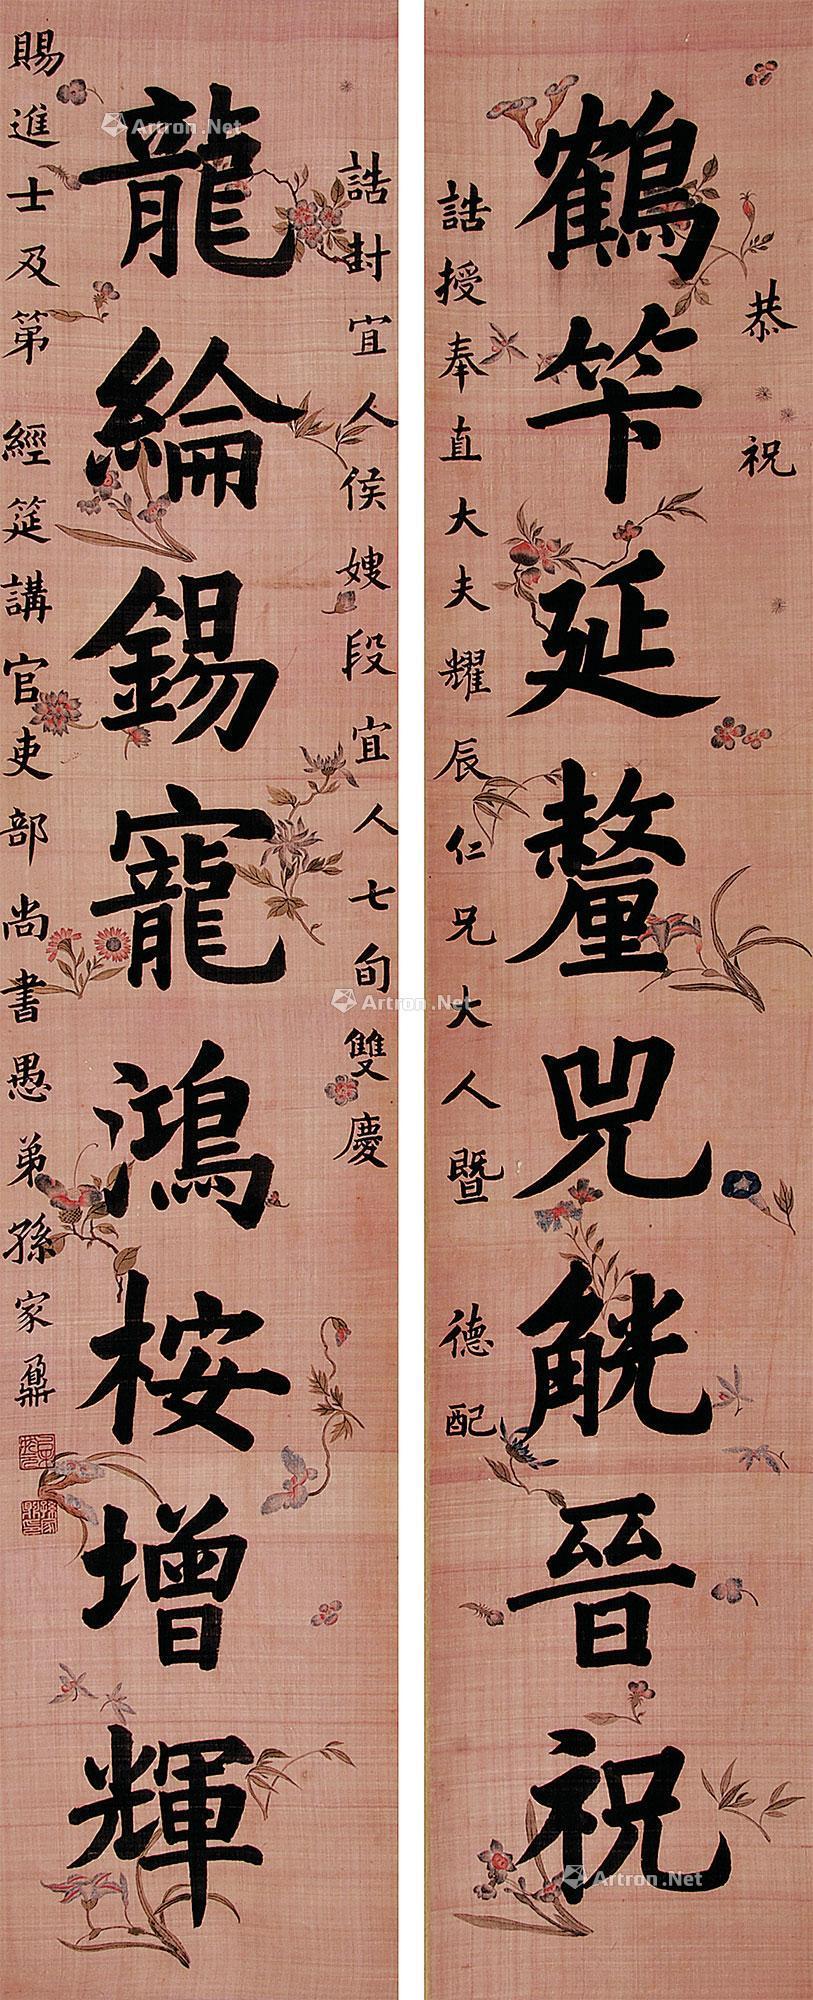 恭祝
鶴笇延釐兕觥晉祝
誥授奉直大夫耀辰仁兄大人暨 德配
誥封宜人侯嫂段宜人七旬雙慶
龍綸錫寵鴻桉增輝
賜進士及第 經筵講官吏部尚書愚弟孫家鼐
Artron.Net
Artron.Net
Artron.Net